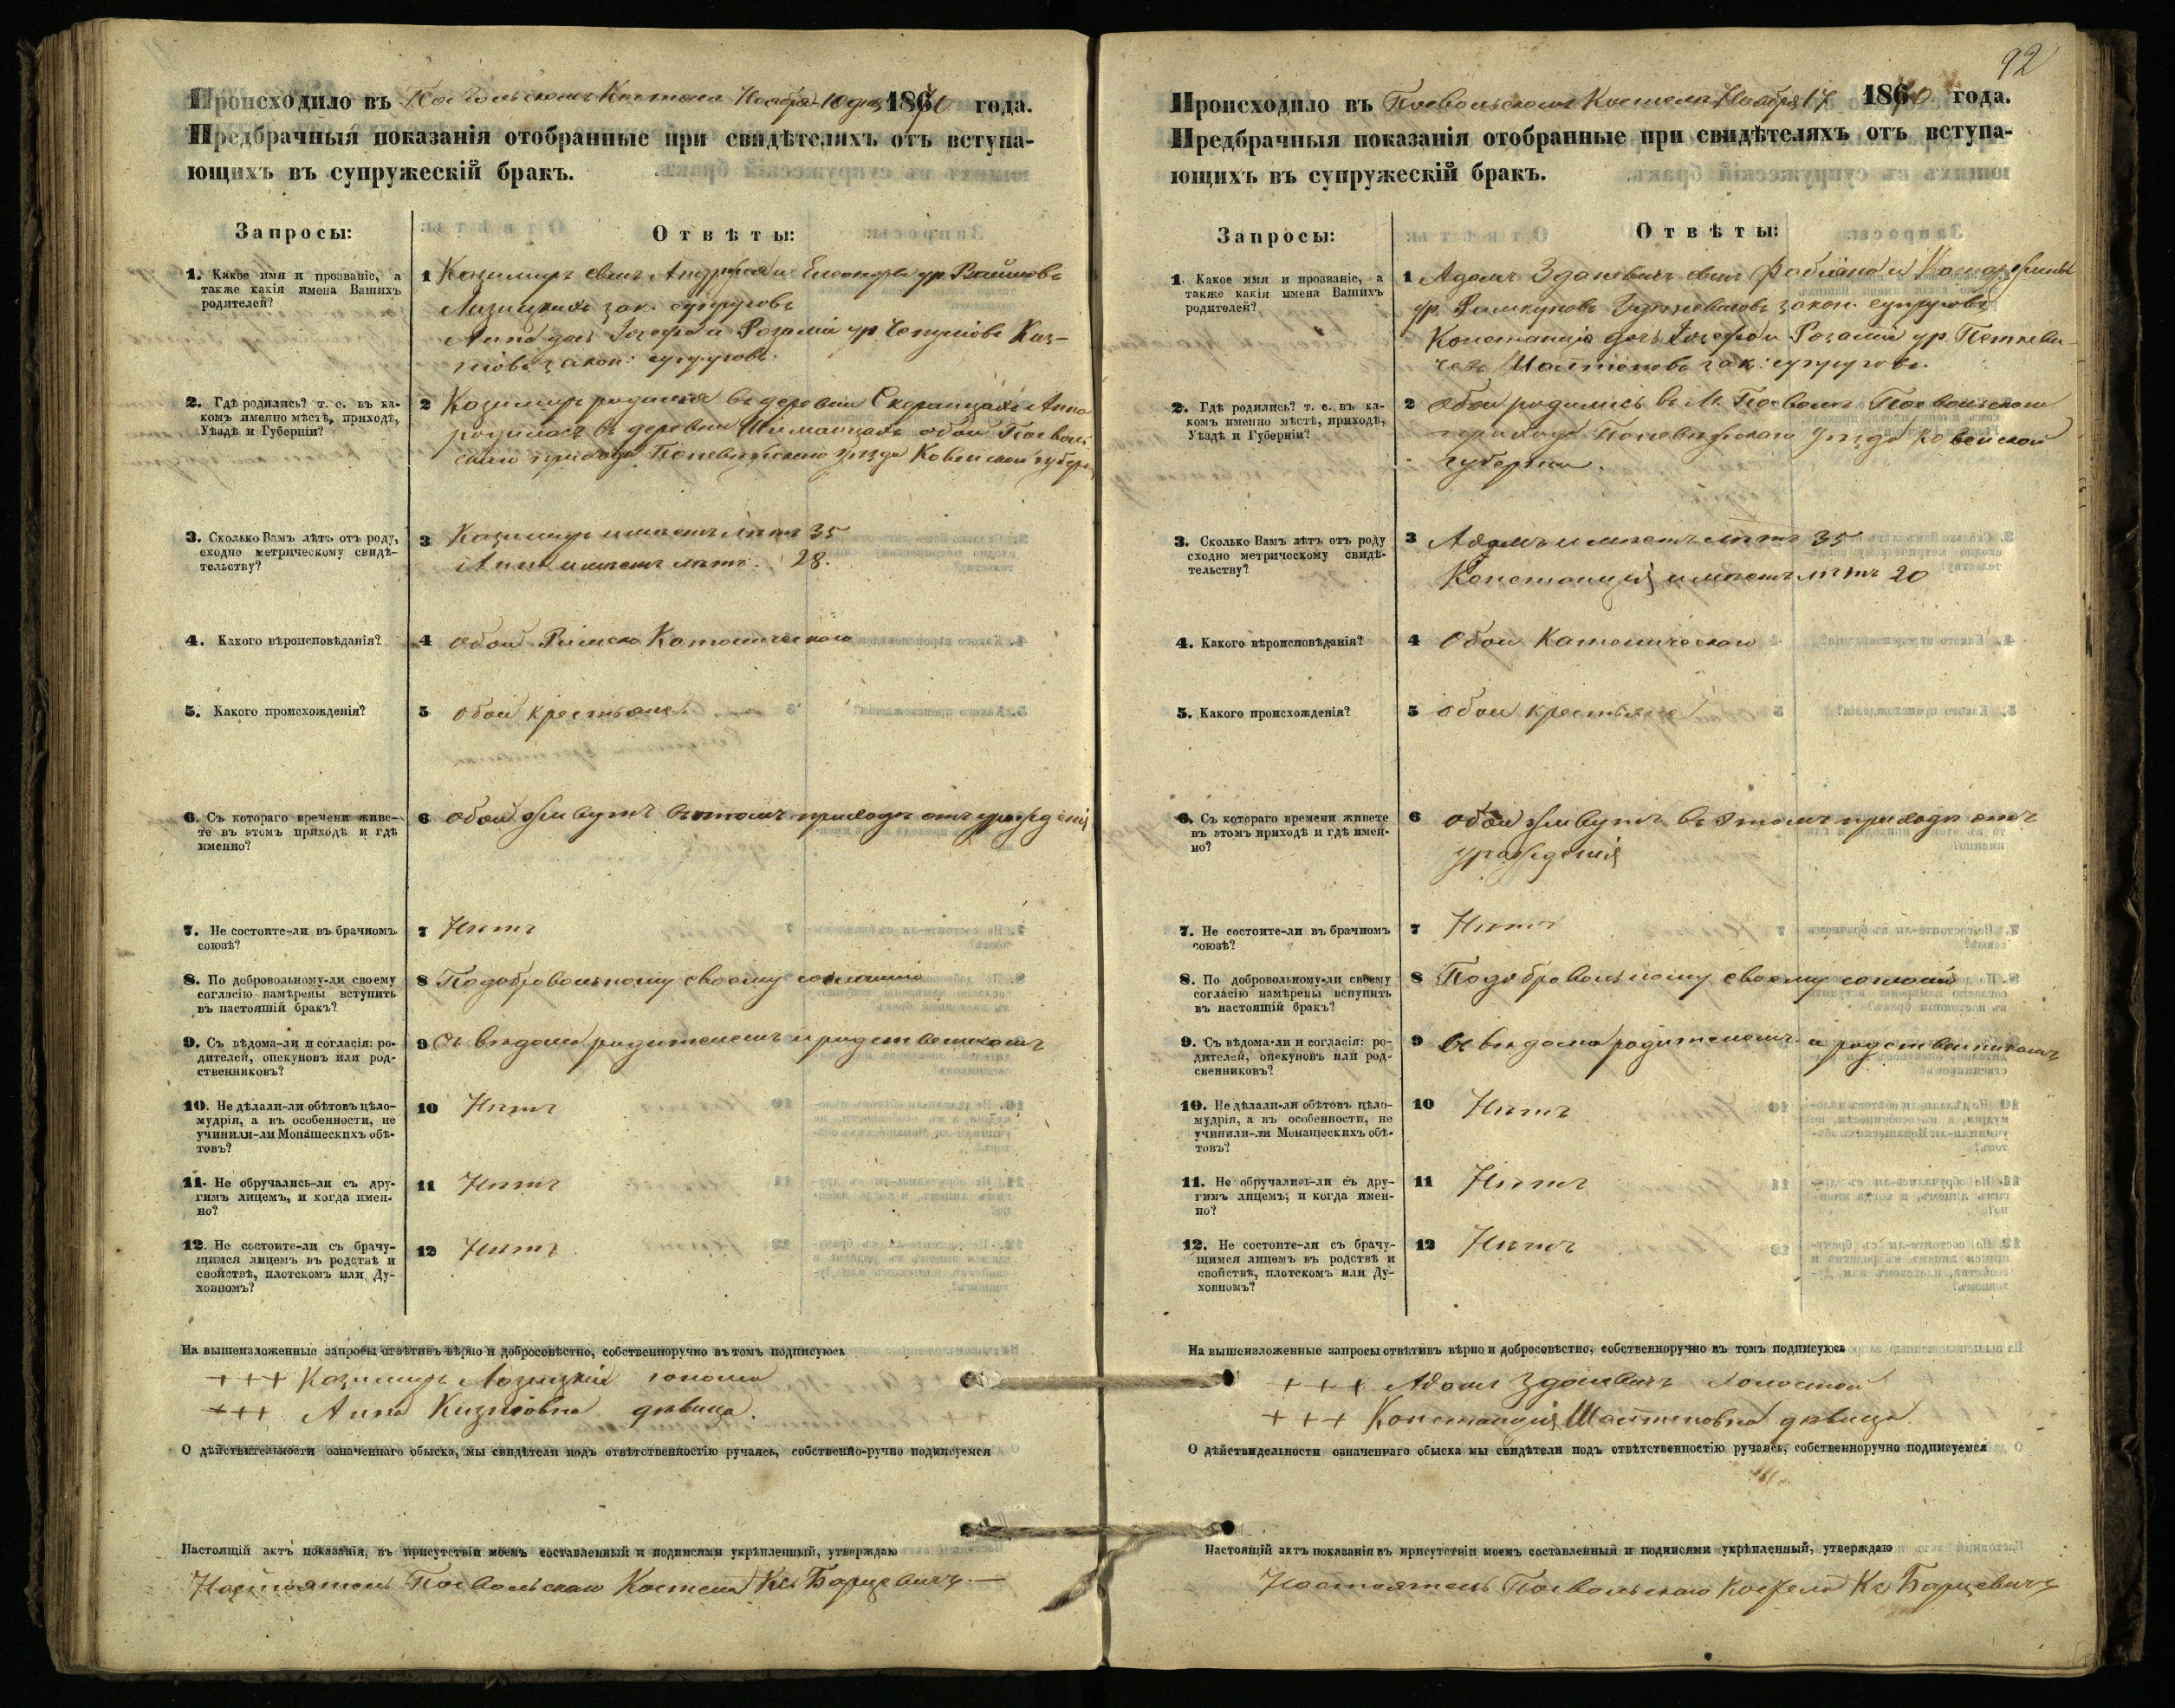 Происходило въ Поевольскомъ Костелѣ Ноября 10 дня 1870 года.
Предбрачныя показанія отобранные при свидѣтеляхъ отъ вступа-
ющихъ въ супружескій бракъ.
Запросы:
Отвѣты:
1. Какое имя и прозваніе, а
также какія имена Вашихъ
родителей?
1 Казимиръ сынъ Андрея и Елеоноры ур.
зак. супруговъ
Анна дочь Іосефа и Розаліи ур.
закон: супруговъ.
2. Гдѣ родились? т. е. въ ка-
комъ именно мѣстѣ, приходѣ,
Уѣздѣ и Губерніи?
2 Казимиръ родился въ деревни Анна
родилась въ деревни обои Поеволь
скаго прихода Поневѣжскаго уѣзда Ковенской губерн
3. Сколько Вамъ лѣтъ отъ роду,
сходно метрическому свидѣ-
тельству?
3 Казимиръ имѣетъ лѣтъ 35
Анна имѣетъ лѣтъ 28.
4. Кахого вѣроисповѣданія?
4 Обои Римско Католическаго
5. Какого происхожденія?
5 обои крестьяне.
6. Съ котораго времени живе-
те въ этомъ приходѣ и гдѣ
именно?
6 обои живутъ въ томъ приходѣ отъ урожденія
7. Не состоите-ли въ брачномъ
союзѣ?
7 Нѣтъ
8. По добровольному-ли своему
согласію намѣрены вступить
въ настоящій бракъ?
8 По добровольному своему согласію
9. Съ вѣдома-ли и согласія: ро-
дителей, опекуновъ или род-
ственниковъ?
9 Съ вѣдома родителемъ и родственикомъ
10. Не дѣлали-ли обѣтовъ цѣло-
мудрія, а въ особенности, не
учинили-ли Монашескихъ обѣ-
товъ?
10 Нѣтъ
11. Не обручались-ли съ дру-
гимъ лицемъ, и когда имен-
но?
11 Нѣтъ
12. Не состоите-ли съ брачу-
щимся лицемъ въ родствѣ и
свойствѣ, плотскомъ или Ду-
ховномъ?
12 Нѣтъ
На вышеизложенные запросы отвѣтивъ вѣрно и добросовѣстно, собственноручно въ томъ подписуюсь
+++ Казимиръ Лозицкій юноша
+++ Анна дѣвица.
О дѣйствительности означеннаго обыска, мы свидѣтели подъ отвѣтственностію ручаясь, собственно-ручно подписуемся
Настоящій актъ показанія, въ присутствіи моемъ составленный и подписями укрѣпленный, утверждаю
Настоятель Поевольскаго Костела Кс Борцевичъ.
92
Происходило въ Поевольскомъ Костелѣ Ноября 17 1870 года.
Предбрачныя показанія отобранные при свидѣтеляхъ отъ вступа-
ющихъ въ супружескій бракъ.
Запросы:
Отвѣты:
1. Какое имя и прозваніе, а
также какія имена Вашихъ
родителей?
1 Адамъ Здановичъ сынъ Фабіана и
ур. закон. супруговъ
Констанція дочь Іозефа и Розаліи ур. Петкеви-
чевъ зак: супруговъ.
2. Гдѣ родились? т. е. въ ка-
комъ именно мѣстѣ, приходѣ,
Уѣздѣ и Губерніи?
2 Обои родились въ М. Поеволѣ Поевольскаго
прихода Поневѣжскаго уѣзда Ковенской
губерніи.
3. Сколько Вамъ лѣтъ отъ роду
сходно метрическому свидѣ-
тельству?
3 Адамъ имѣетъ лѣтъ 35
Констанція имѣетъ лѣтъ 20
4. Какого вѣроисповѣданія?
4 Обои Католическаго
5. Какого происхожденія?
5 обои крестьяне
6. Съ котораго времени живете
въ этомъ приходѣ и гдѣ имен-
но?
6 обои живутъ въ этомъ приходѣ отъ
урожденія
7. Не состоите-ли въ брачномъ
союзѣ?
7 Нѣтъ
8. По добровольному-ли своему
согласію намѣрены вступить
въ настоящій бракъ?
8 По добровольному своему согласій
9. Съ вѣдома-ли и согласія: ро-
дителей, опекуновъ или род-
свенниковъ?
9 Съ вѣдома родителемъ и родственникомъ
10. Не дѣлали-ли обѣтовъ цѣло-
мудрія, а въ особенности, не
учинили-ли Монашескихъ обѣ-
товъ?
10 Нѣтъ
11. Не обручались-ли съ дру-
гимъ лицемъ, и когда имен-
но?
11 Нѣтъ
12. Не состоите-ли съ брачу-
щимся лицемъ въ родствѣ и
свойствѣ, плотскомъ или Ду-
ховномъ?
12 Нѣтъ
На вышеизложенные запросы отвѣтивъ вѣрно и добросовѣстно, собственноручно въ томъ подписуюсь
+++ Адамъ Здановичъ холостой
+++ Констанція дѣвица.
О дѣйствидельности означеннаго обыска мы свидѣтели подъ отвѣтственностію ручаясь, собственноручно подписуемся
Настоящій актъ показанія въ присутствіи моемъ составленный и подписями укрѣпленный, утверждаю
Настоятель Поевольскаго Костела Кс Борцевичъ